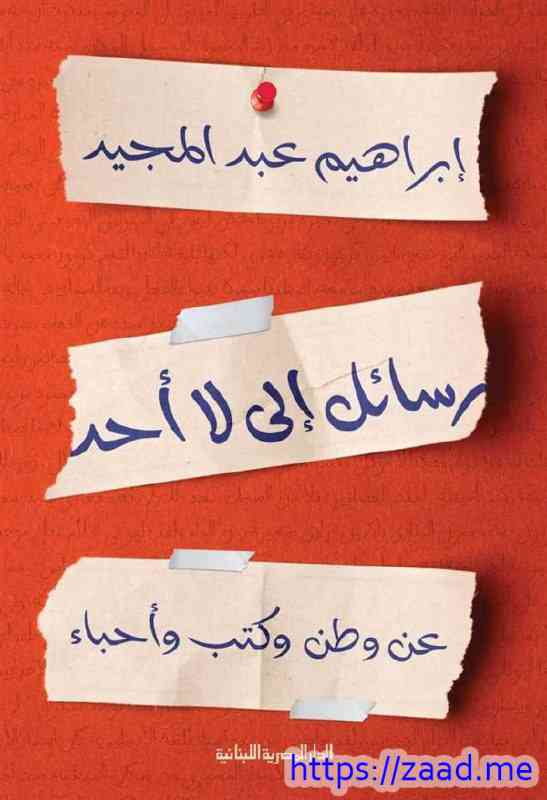 إبراهيم عبد المجيد
رسائل إلى لا أحد
عن وطن وكتب وأحباء
الدار المصرية اللبنانية
https://zaad.me